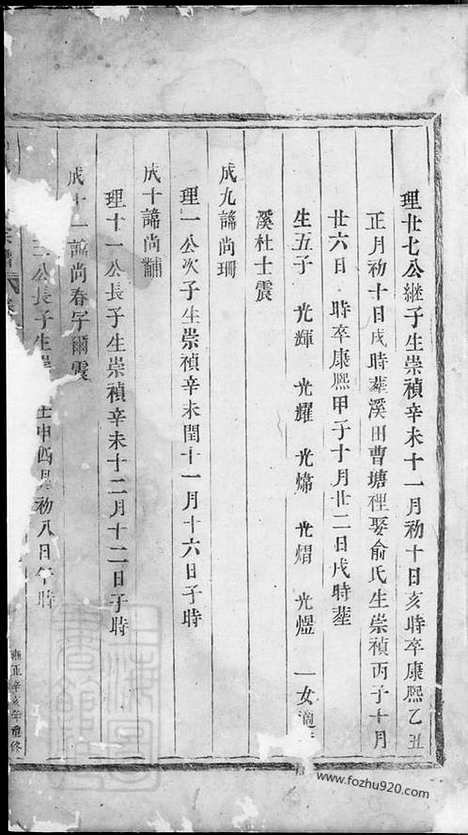 理廿七公継子生崇禎辛未十一月初十日亥時卒康熙乙丑
正月初十日戌時葬溪田曹塘裡娶俞氏生崇禎丙子十月
廿六日 時卒康熙甲子十月廿二日戌時葬
生五子 光輝 光耀 光煒 光熠 光煜 一女適
溪杜士震
成九諱尚珊
理一公次子生崇禎辛未閏十一月十六日子時
成十諱尚黼
理十一公長子生崇禎辛未十二月十二日子時
成十一諱尚春字爾震
公長子生 壬申四月初八日午時
雍正辛亥年重修
上海圖書館
www.fozhu920.com